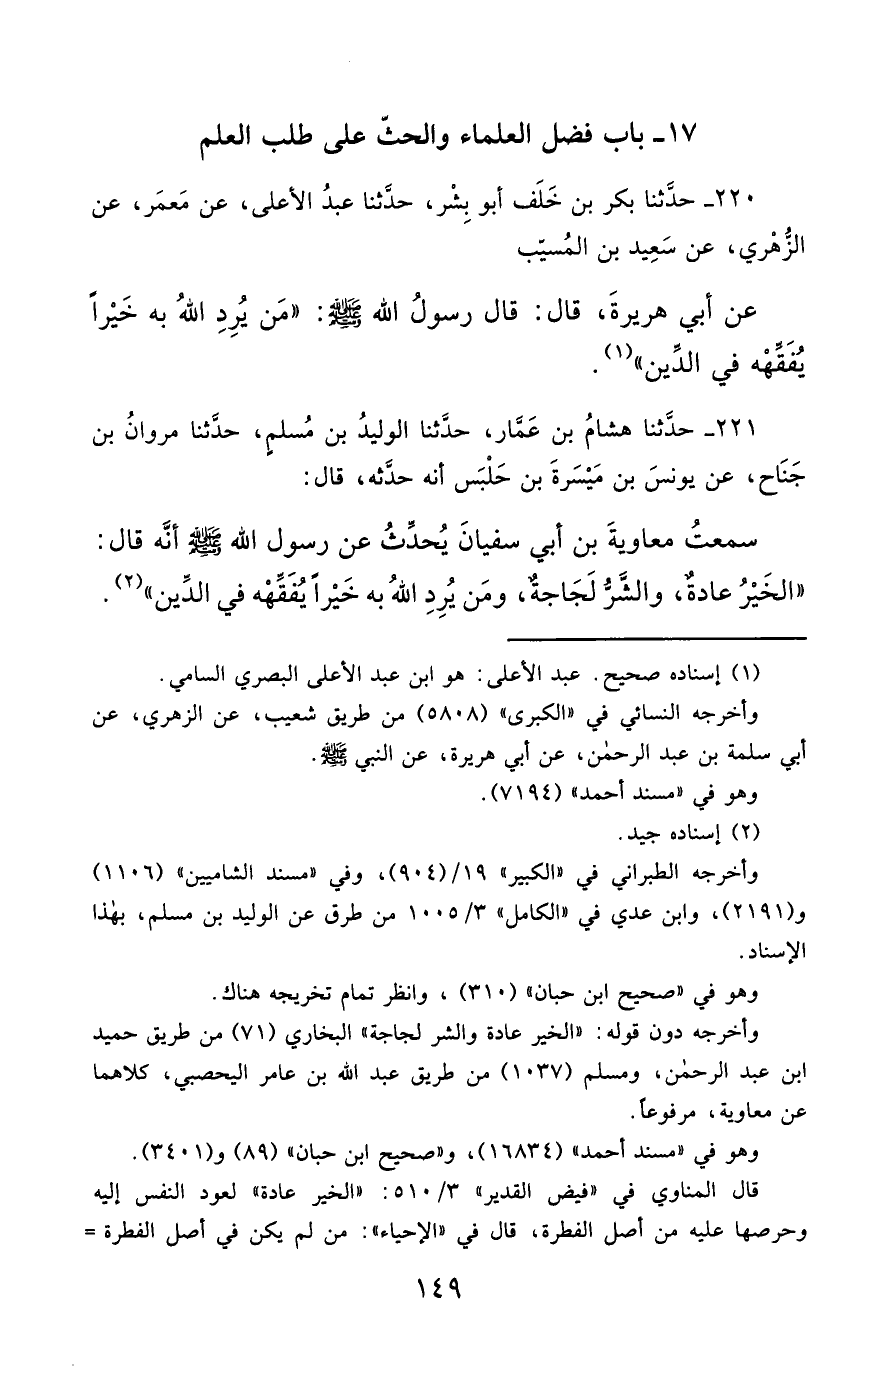 ١٧ـ باب فضل العلماء والحثّ على طلب العلم
٢٢٠ـ حدَّثنا بكر بن خَلَف أبو بِشْر، حدَّثنا عبدُ الأعلى، عن مَعمَر، عن
الزُّهْري، عن سَعِيد بن المُسيّب
عن أبي هريرةَ، قال: قال رسولُ الله ﷺ: «مَن يُرِدِ اللهُ به خَيْراً
يُفَقِّهْه في الدِّين»(١).
٢٢١ـ حدَّثنا هشامُ بن عَمَّار، حدَّثنا الوليدُ بن مُسلمٍ، حدَّثنا مروانُ بن
جَنَاح، عن يونسَ بن مَيْسَرةَ بن حَلْبَس أنه حدَّثه، قال:
سمعتُ معاويةَ بن أبي سفيانَ يُحدِّثُ عن رسول الله ﷺ أنَّه قال:
«الخَيْرُ عادةٌ، والشَّرُّ لَجَاجةٌ، ومَن يُرِدِ اللهُ به خَيْراً يُفَقِّهْه في الدِّين»(٢).
(١) إسناده صحيح. عبد الأعلى: هو ابن عبد الأعلى البصري السامي.
وأخرجه النسائي في «الكبرى» (٥٨٠٨) من طريق شعيب، عن الزهري، عن
أبي سلمة بن عبد الرحمٰن، عن أبي هريرة، عن النبي ﷺ.
وهو في «مسند أحمد» (٧١٩٤).
(٢) إسناده جيد.
وأخرجه الطبراني في «الكبير» ١٩/(٩٠٤)، وفي «مسند الشاميين» (١١٠٦)
و(٢١٩١)، وابن عدي في «الكامل» ٣/ ١٠٠٥ من طرق عن الوليد بن مسلم، بهٰذا
الإسناد.
وهو في «صحيح ابن حبان» (٣١٠) ، وانظر تمام تخريجه هناك.
وأخرجه دون قوله: «الخير عادة والشر لجاجة» البخاري (٧١) من طريق حميد
ابن عبد الرحمٰن، ومسلم (١٠٣٧) من طريق عبد الله بن عامر اليحصبي، كلاهما
عن معاوية، مرفوعاً.
وهو في «مسند أحمد» (١٦٨٣٤)، و«صحيح ابن حبان» (٨٩) و(٣٤٠١).
قال المناوي في «فيض القدير» ٣/ ٥١٠: «الخير عادة» لعود النفس إليه
وحرصها عليه من أصل الفطرة، قال في «الإحياء»: من لم يكن في أصل الفطرة =
١٤٩